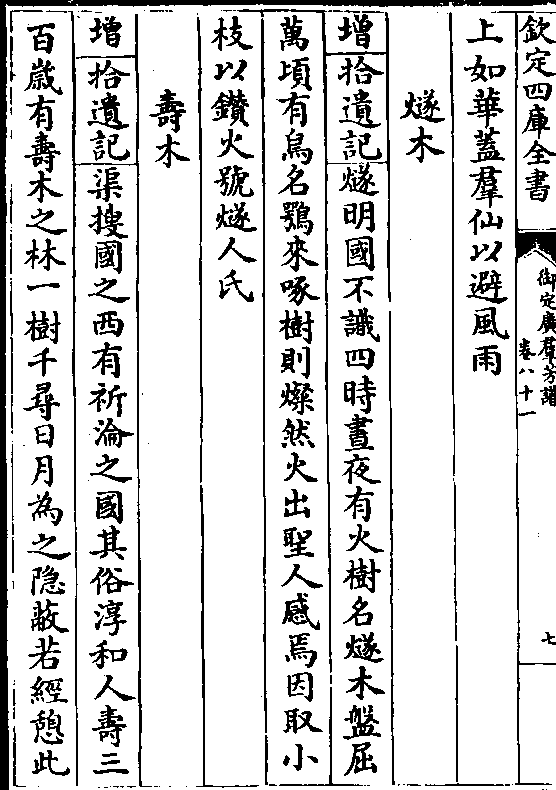 欽定四庫全書
御定廣羣芳譜
卷八十一
七
上如華蓋羣仙以避風雨
燧木
增拾遺記燧明國不識四時晝夜有火樹名燧木盤屈
萬頃有鳥名鶚來啄樹則燦然火出聖人感焉因取小
枝以鑽火號燧人氏
壽木
增拾遺記渠搜國之西有祈淪之國其俗淳和人壽三
百歲有壽木之林一樹千尋日月為之隐蔽若經憩此